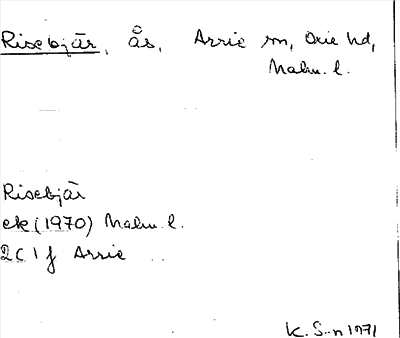 Risebjär, ås, Arrie sn, Oxie hd,
Malm. l.
Risebjär
ek (1970) Malm. l.
2C 1f Arrie
K. S-n 1971